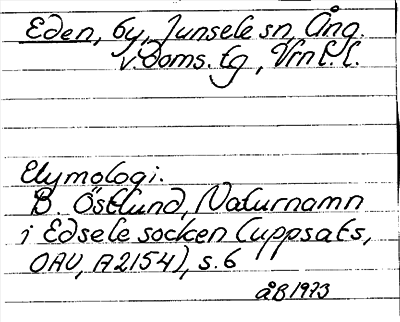 Eden, by, Junsele sn, Ång.
v. doms. tg, Vrn l. l.
Etymologi.
B. Östlund, Naturnamn
i Edsele socken (uppsats,
OAU, A2154), s. 6
ÅB 1973